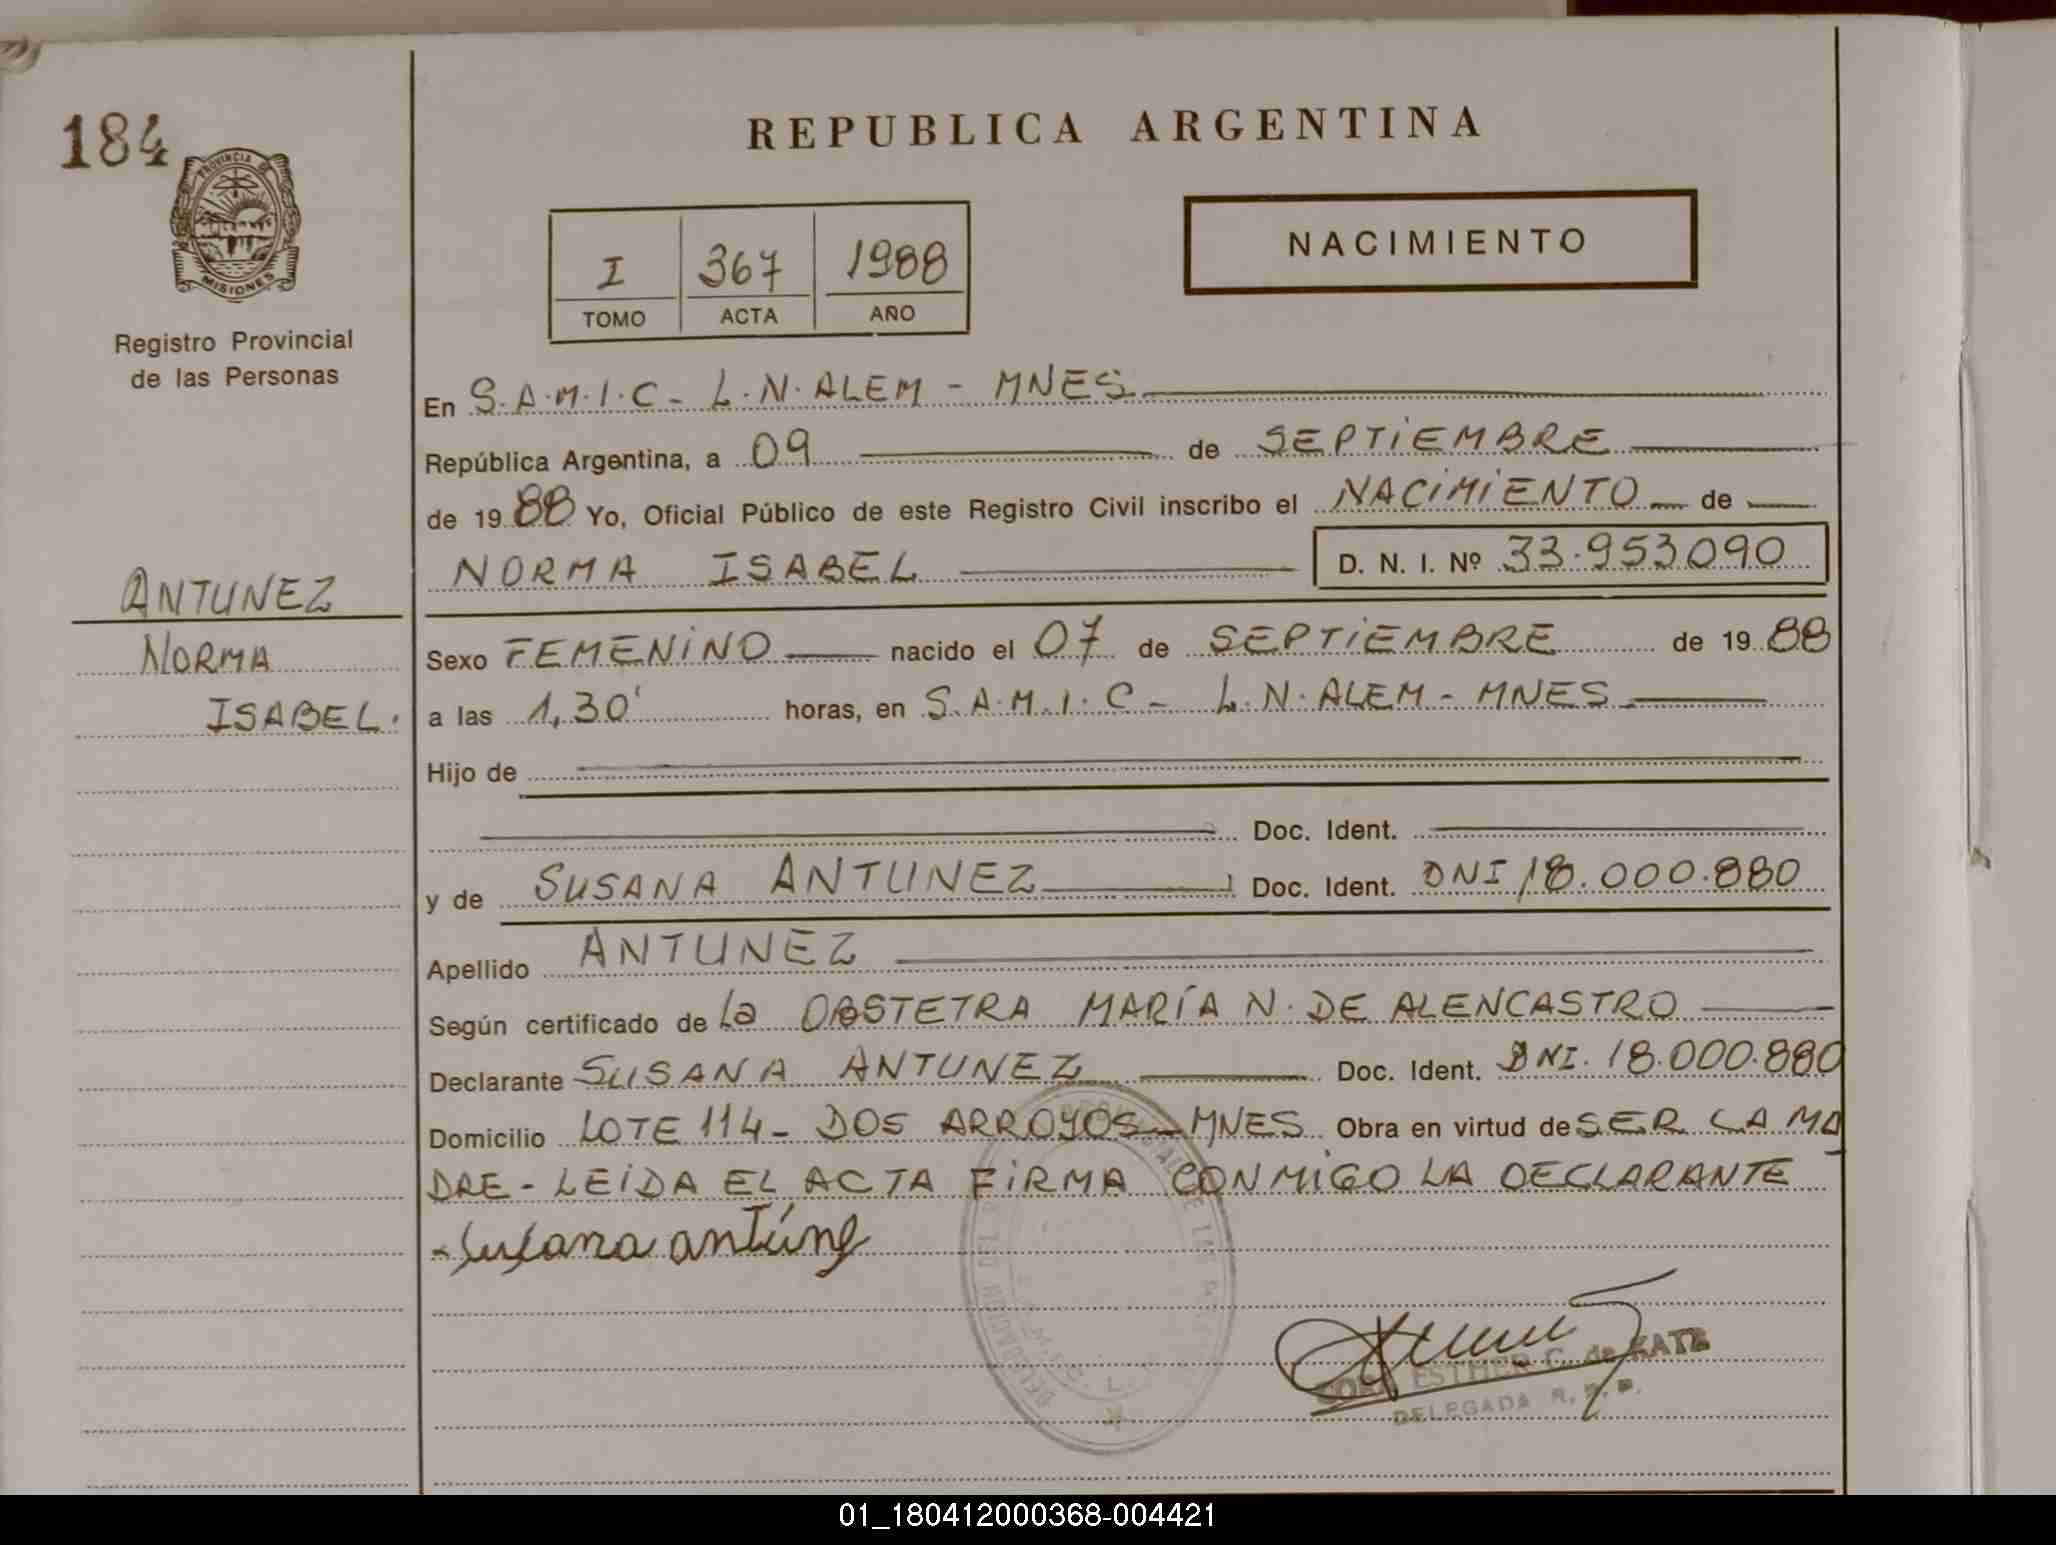 184
REPUBLICA ARGENTINA
PROVINCIA DE
MISIONES
Registro Provincial
de las Personas
I 367 1988
TOMO ACTA AÑO
NACIMIENTO
En S.A.M.I.C - L.N. ALEM - MNES
República Argentina, a 09 de SEPTIEMBRE
de 1988 Yo, Oficial Público de este Registro Civil inscribo el NACIMIENTO de
NORMA ISABEL D. N. I. Nº 33.953090
ANTUNEZ
NORMA
ISABEL.
Sexo FEMENINO nacido el 07 de SEPTIEMBRE de 1988
a las 1,30' horas, en S.A.M.I.C - L.N. ALEM - MNES
Hijo de
Doc. Ident.
y de SUSANA ANTUNEZ Doc. Ident. DNI 18.000.880
Apellido ANTUNEZ
Según certificado de La OBSTETRA MARÍA N. DE ALENCASTRO
Declarante SUSANA ANTUNEZ Doc. Ident. DNI. 18.000.880
Domicilio LOTE 114 - DOS ARROYOS - MNES Obra en virtud de SER LA MA
DRE - LEIDA EL ACTA FIRMA CONMIGO LA DECLARANTE
Susana antúnez
ESTHER C. de KATZ
DELEGADA R. P. P.
01_180412000368-004421